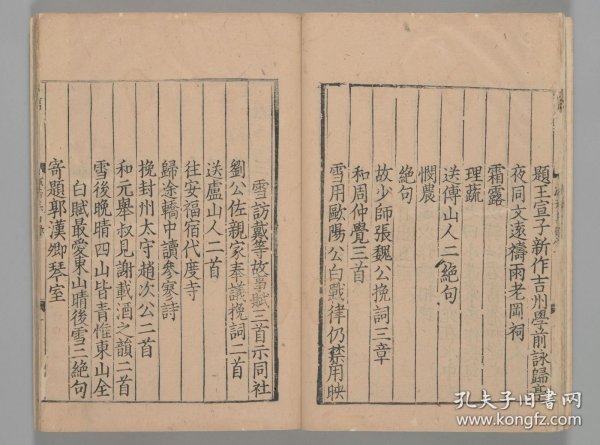 題王宣子新作吉州學前詠歸亭
夜同文遠禱雨老岡祠
霜露
理蔬
送傅山人二絕句
憫農
絕句
故少師張魏公挽詞三章
和周仲覺三首
雪用歐陽公白戰律仍禁用映
雪訪戴等故事賦三首示同社
劉公佐親家奉議挽詞二首
送盧山人二首
往安福宿代度寺
歸途轎中讀參寥詩
挽封州太守趙次公二首
和元舉叔見謝載酒之韻二首
雪後晚晴四山皆青惟東山全
白賦最愛東山晴後雪二絕句
寄題郭漢卿琴室
孔夫子旧书网
www.kongfz.com